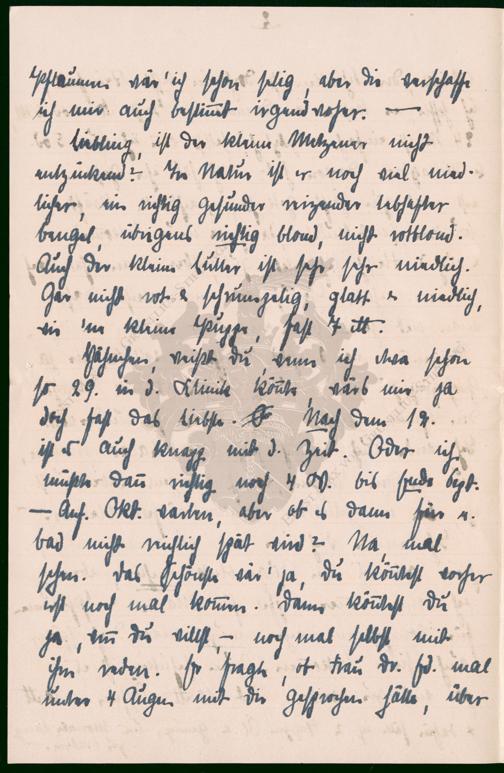 Pflaumen wär' ich schon selig, aber die verschaffe
ich mir auch bestimmt irgendwoher. —
Liebling, ist der kleine Metzener nicht
entzückend? In Natur ist er noch viel nied-
licher, ein richtig gesunder reizender lebhafter
bengel, übrigens richtig blond, nicht rotblond.
Auch der kleine Lutter ist sehr sehr niedlich.
Gar nicht rot & schrumpelig, glatt & niedlich,
wie 'ne kleine Puppe, fast 7 tt.
weißt du, wenn ich etwa schon
so 29. in d. Klinik könnte, wärs mir ja
doch fast das liebste. Nach dem 12.
ist es auch knapp mit d. Zeit. Oder ich
müßte dann richtig noch 4 W. bis Ende Sept.
— Anf. Okt. warten, aber ob es dann für
bad nicht reichlich spät wird? Na, mal
sehen. Das Schönste wär' ja, du könntest vorher
erst noch mal kommen. Dann könntest du
ja, wenn du willst, – noch mal selbst mit
ihm reden. Er fragte, ob Frau Dr. Ed. mal
unter 4 Augen mit dir gesprochen hätte, über